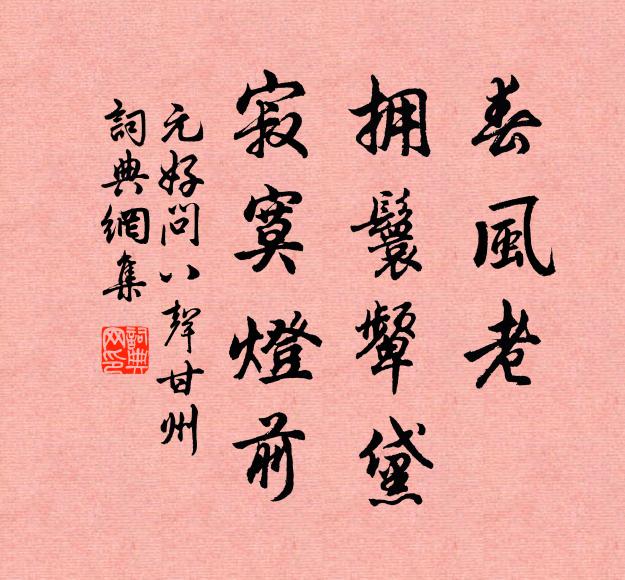 春風老
拥鬟顰黛
寂寞燈前
元好问八聲甘州
詞典網集
詞典網印